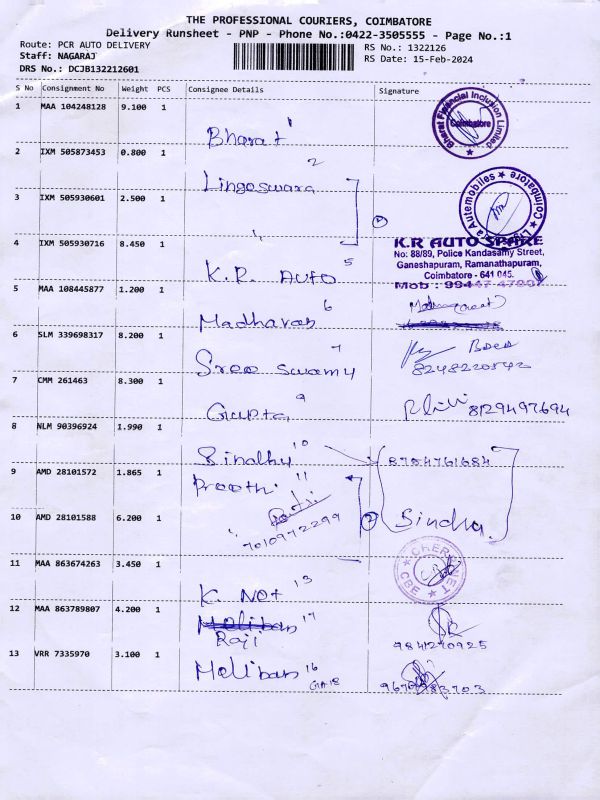 THE PROFESSIONAL COURIERS, COIMBATORE
Delivery Runsheet - PNP - Phone No.:0422-3505555 - Page No.:1
Route: PCR AUTO DELIVERY
Staff: NAGARAJ
DRS No.: DCJB132212601
RS No.: 1322126
RS Date: 15-Feb-2024
S No Consignment No Weight PCS Consignee Details Signature
1 MAA 104248128 9.100 1
Bharat 1
Bharat Financial Inclusion Limited
Coimbatore
2 IXM 505873453 0.800 1
2
Lingeswara
3 IXM 505930601 2.500 1
2
Automobiles
Coimbatore
4 IXM 505930716 8.450 1
K.R. AUTO 5
K.R AUTO SPARE
No: 88/89, Police Kandasamy Street,
Ganeshapuram, Ramanathapuram,
Coimbatore - 641 045.
Mob : 99447
5 MAA 108445877 1.200 1
Madhavan 6
6 SLM 339698317 8.200 1
Sree Swamy 7
8248220542
7 CMM 261463 8.300 1
Gupta 9
8129497694
8 NLM 90396924 1.990 1
Sindhu 10
8754761684
9 AMD 28101572 1.865 1
Preethi 11
7010972299
2
Sindhu
10 AMD 28101588 6.200 1
11 MAA 863674263 3.450 1
K. Not 13
CBE
12 MAA 863789807 4.200 1
Meliban 14
Raji
9841270925
13 VRR 7335970 3.100 1
Meliban 16